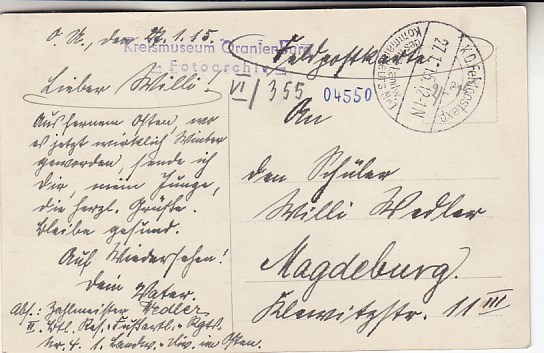 O. U., den 27.1.15.
Kreismuseum Oranienburg
- Fotoarchiv -
Feldpostkarte
VI/355
04550
K.D. Feldpostexp.
27.1.15. 12-1N
Lieber Willi!
Aus fernem Osten, wo
es jetzt wirklich Winter
geworden, sende ich
Dir, mein Junge,
die herzl. Grüße.
Bleibe gesund.
Auf Wiedersehen!
Dein Vater.
Abs: Zahlmeister Wedler
II. Btl. Res.-Fußartl.-Rgts.
Nr. 4. 1. Landw.-Div. im Osten.
An
den Schüler
Willi Wedler
Magdeburg.
Klewitzstr. 11 III